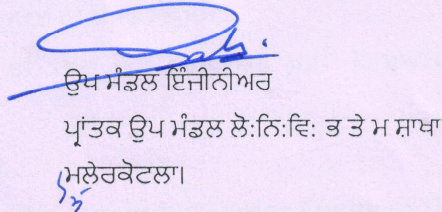 ਉਪ ਮੰਡਲ ਇੰਜੀਨੀਅਰ
ਪ੍ਰਾਂਤਕ ਉਪ ਮੰਡਲ ਲੋ:ਨਿ:ਵਿ: ਭ ਤੇ ਮ ਸ਼ਾਖਾ
ਮਲੇਰਕੋਟਲਾ।